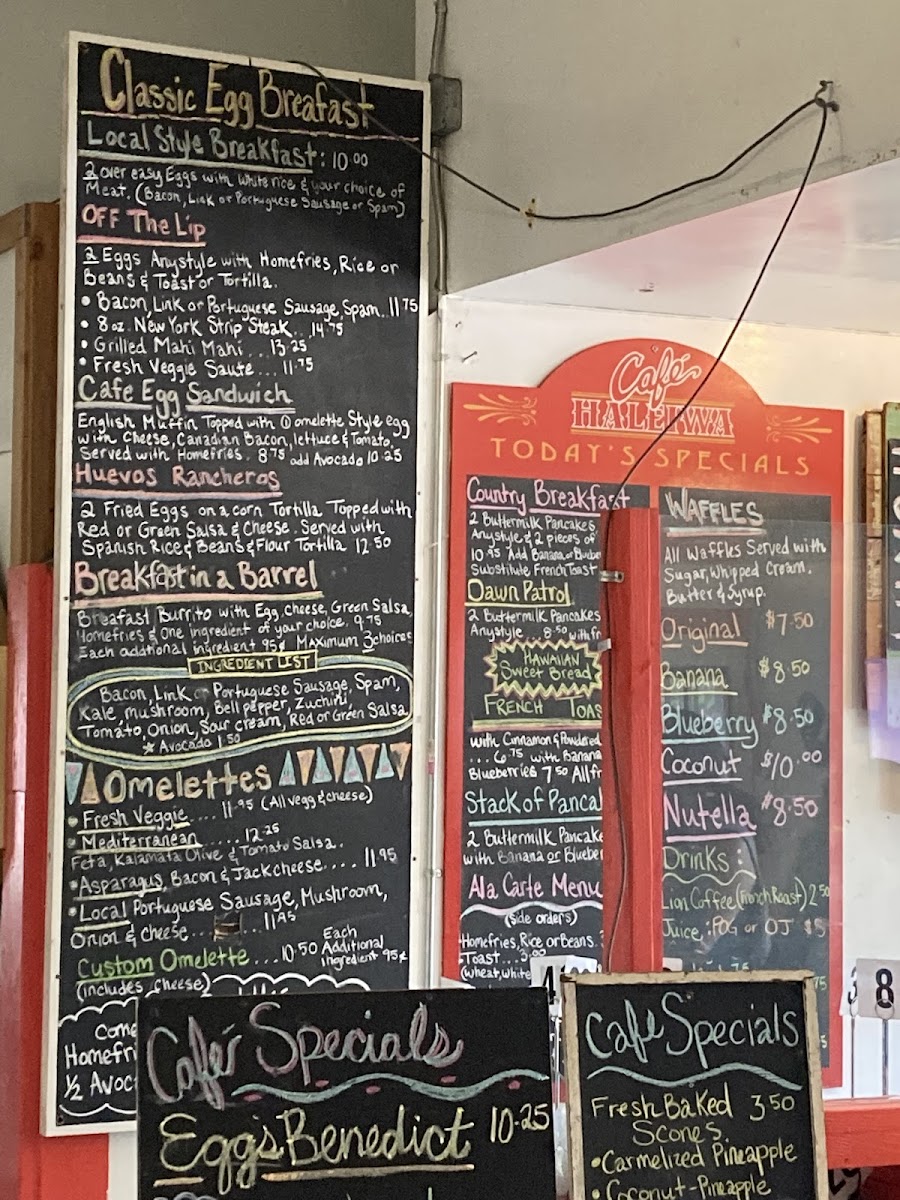 Classic Egg Breafast
Local Style Breakfast: 10.00
2 over easy Eggs with white rice & your choice of
Meat. (Bacon, Link or Portuguese Sausage or Spam)
OFF The Lip
2 Eggs Anystyle with Homefries, Rice or
Beans & Toast or Tortilla.
• Bacon, Link or Portuguese Sausage, Spam.. 11.75
• 8 oz. New York Strip Steak... 14.75
• Grilled Mahi Mahi ... 13.25
• Fresh Veggie Saute... 11.75
Cafe Egg Sandwich
English Muffin Topped with ① omelette Style egg
with Cheese, Canadian Bacon, lettuce & Tomato.
Served with Homefries. 8.75 add Avocado 10.25
Huevos Rancheros
2 Fried Eggs on a corn Tortilla Topped with
Red or Green Salsa & Cheese. Served with
Spanish Rice & Beans & Flour Tortilla 12.50
Breakfast in a Barrel
Breafast Burrito with Egg, cheese, Green Salsa,
Homefries & One ingredient of your choice. 9.75
Each additional ingredient 95¢ Maximum 3 choices
INGREDIENT LIST
Bacon, Link or Portuguese Sausage, Spam,
Kale, mushroom, Bell pepper, Zuchini,
Tomato, Onion, Sour cream, Red or Green Salsa
★ Avocado 1.50
Omelettes
• Fresh Veggie .... 11.95 (All vegg & cheese)
• Mediterranean ..... 12.25
Feta, Kalamata Olive & Tomato Salsa.
• Asparagus, Bacon & Jack cheese.... 11.95
• Local Portuguese Sausage, Mushroom,
Onion & cheese.... 11.95
Custom Omelette ... 10.50 Each Additional ingredient 95¢
(includes cheese)
Come
Homefri
½ Avoc
Café HALEIWA
TODAY'S SPECIALS
Country Breakfast
2 Buttermilk Pancakes,
Anystyle & 2 pieces of
10.95 Add Banana or Blueber
Substitute French Toast
Dawn Patrol
2 Buttermilk Pancakes
Anystyle ... 8.50 with fr
HAWAIIAN
Sweet Bread
FRENCH TOAS
with Cinnamon & Powdered
... 6.75 with Banana
Blueberries 7.50 All fr
Stack of Panca
2 Buttermilk Pancake
with Banana or Blueber
Ala Carte Menu
(Side orders)
Homefries, Rice or Beans..
Toast... 3.00
(Wheat, White
WAFFLES
All Waffles Served with
Sugar, Whipped Cream,
Butter & Syrup.
Original $7.50
Banana $8.50
Blueberry $8.50
Coconut $10.00
Nutella $8.50
Drinks:
Lion Coffee (French Roast) 2.50
Juice: POG or OJ $5
8
Café Specials
Eggs Benedict 10.25
Cafe Specials
Fresh Baked 3.50
Scones
• Carmelized Pineapple
• Coconut-Pineapple